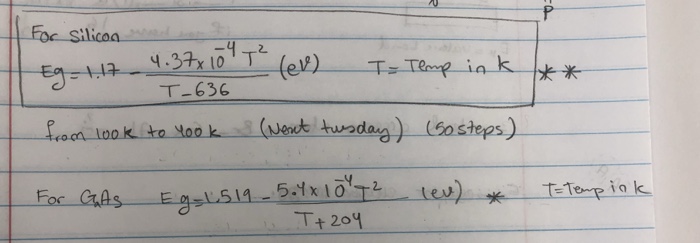 P
For Silicon
Eg = 1.17 - 4.37 x 10^-4 T^2 / T - 636 (eV) T = Temp in k **
from 100k to 400k (Next tuesday) (50 steps)
For GaAs Eg = 1.519 - 5.4 x 10^-4 T^2 / T + 204 (eV) * T = Temp in k